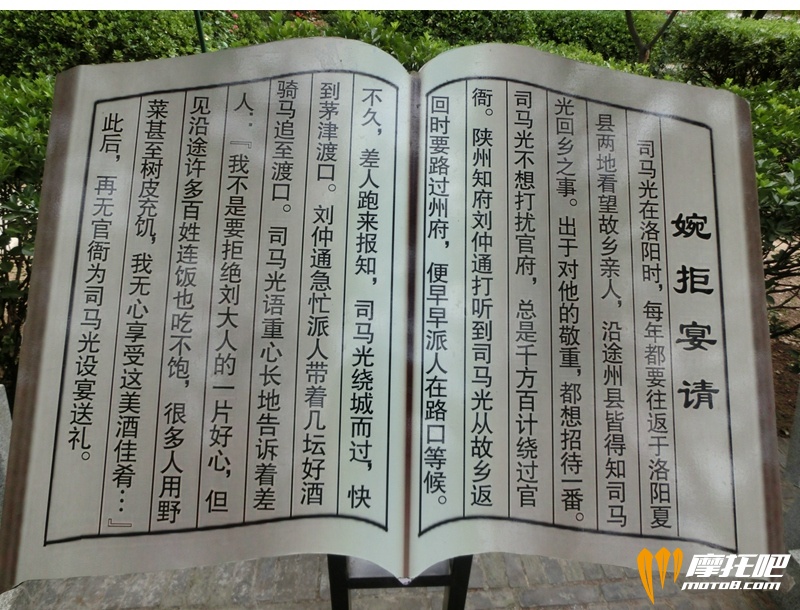 婉拒宴请
司马光在洛阳时，每年都要往返于洛阳夏
县两地看望故乡亲人，沿途州县皆得知司马
光回乡之事。出于对他的敬重，都想招待一番。
司马光不想打扰官府，总是千方百计绕过官
衙。陕州知府刘仲通打听到司马光从故乡返
回时要路过州府，便早早派人在路口等候。
不久，差人跑来报知，司马光绕城而过，快
到茅津渡口。刘仲通急忙派人带着几坛好酒
骑马追至渡口。司马光语重心长地告诉着差
人：『我不是要拒绝刘大人的一片好心，但
见沿途许多百姓连饭也吃不饱，很多人用野
菜甚至树皮充饥，我无心享受这美酒佳肴…』
此后，再无官衙为司马光设宴送礼。
摩托吧
moto8.com